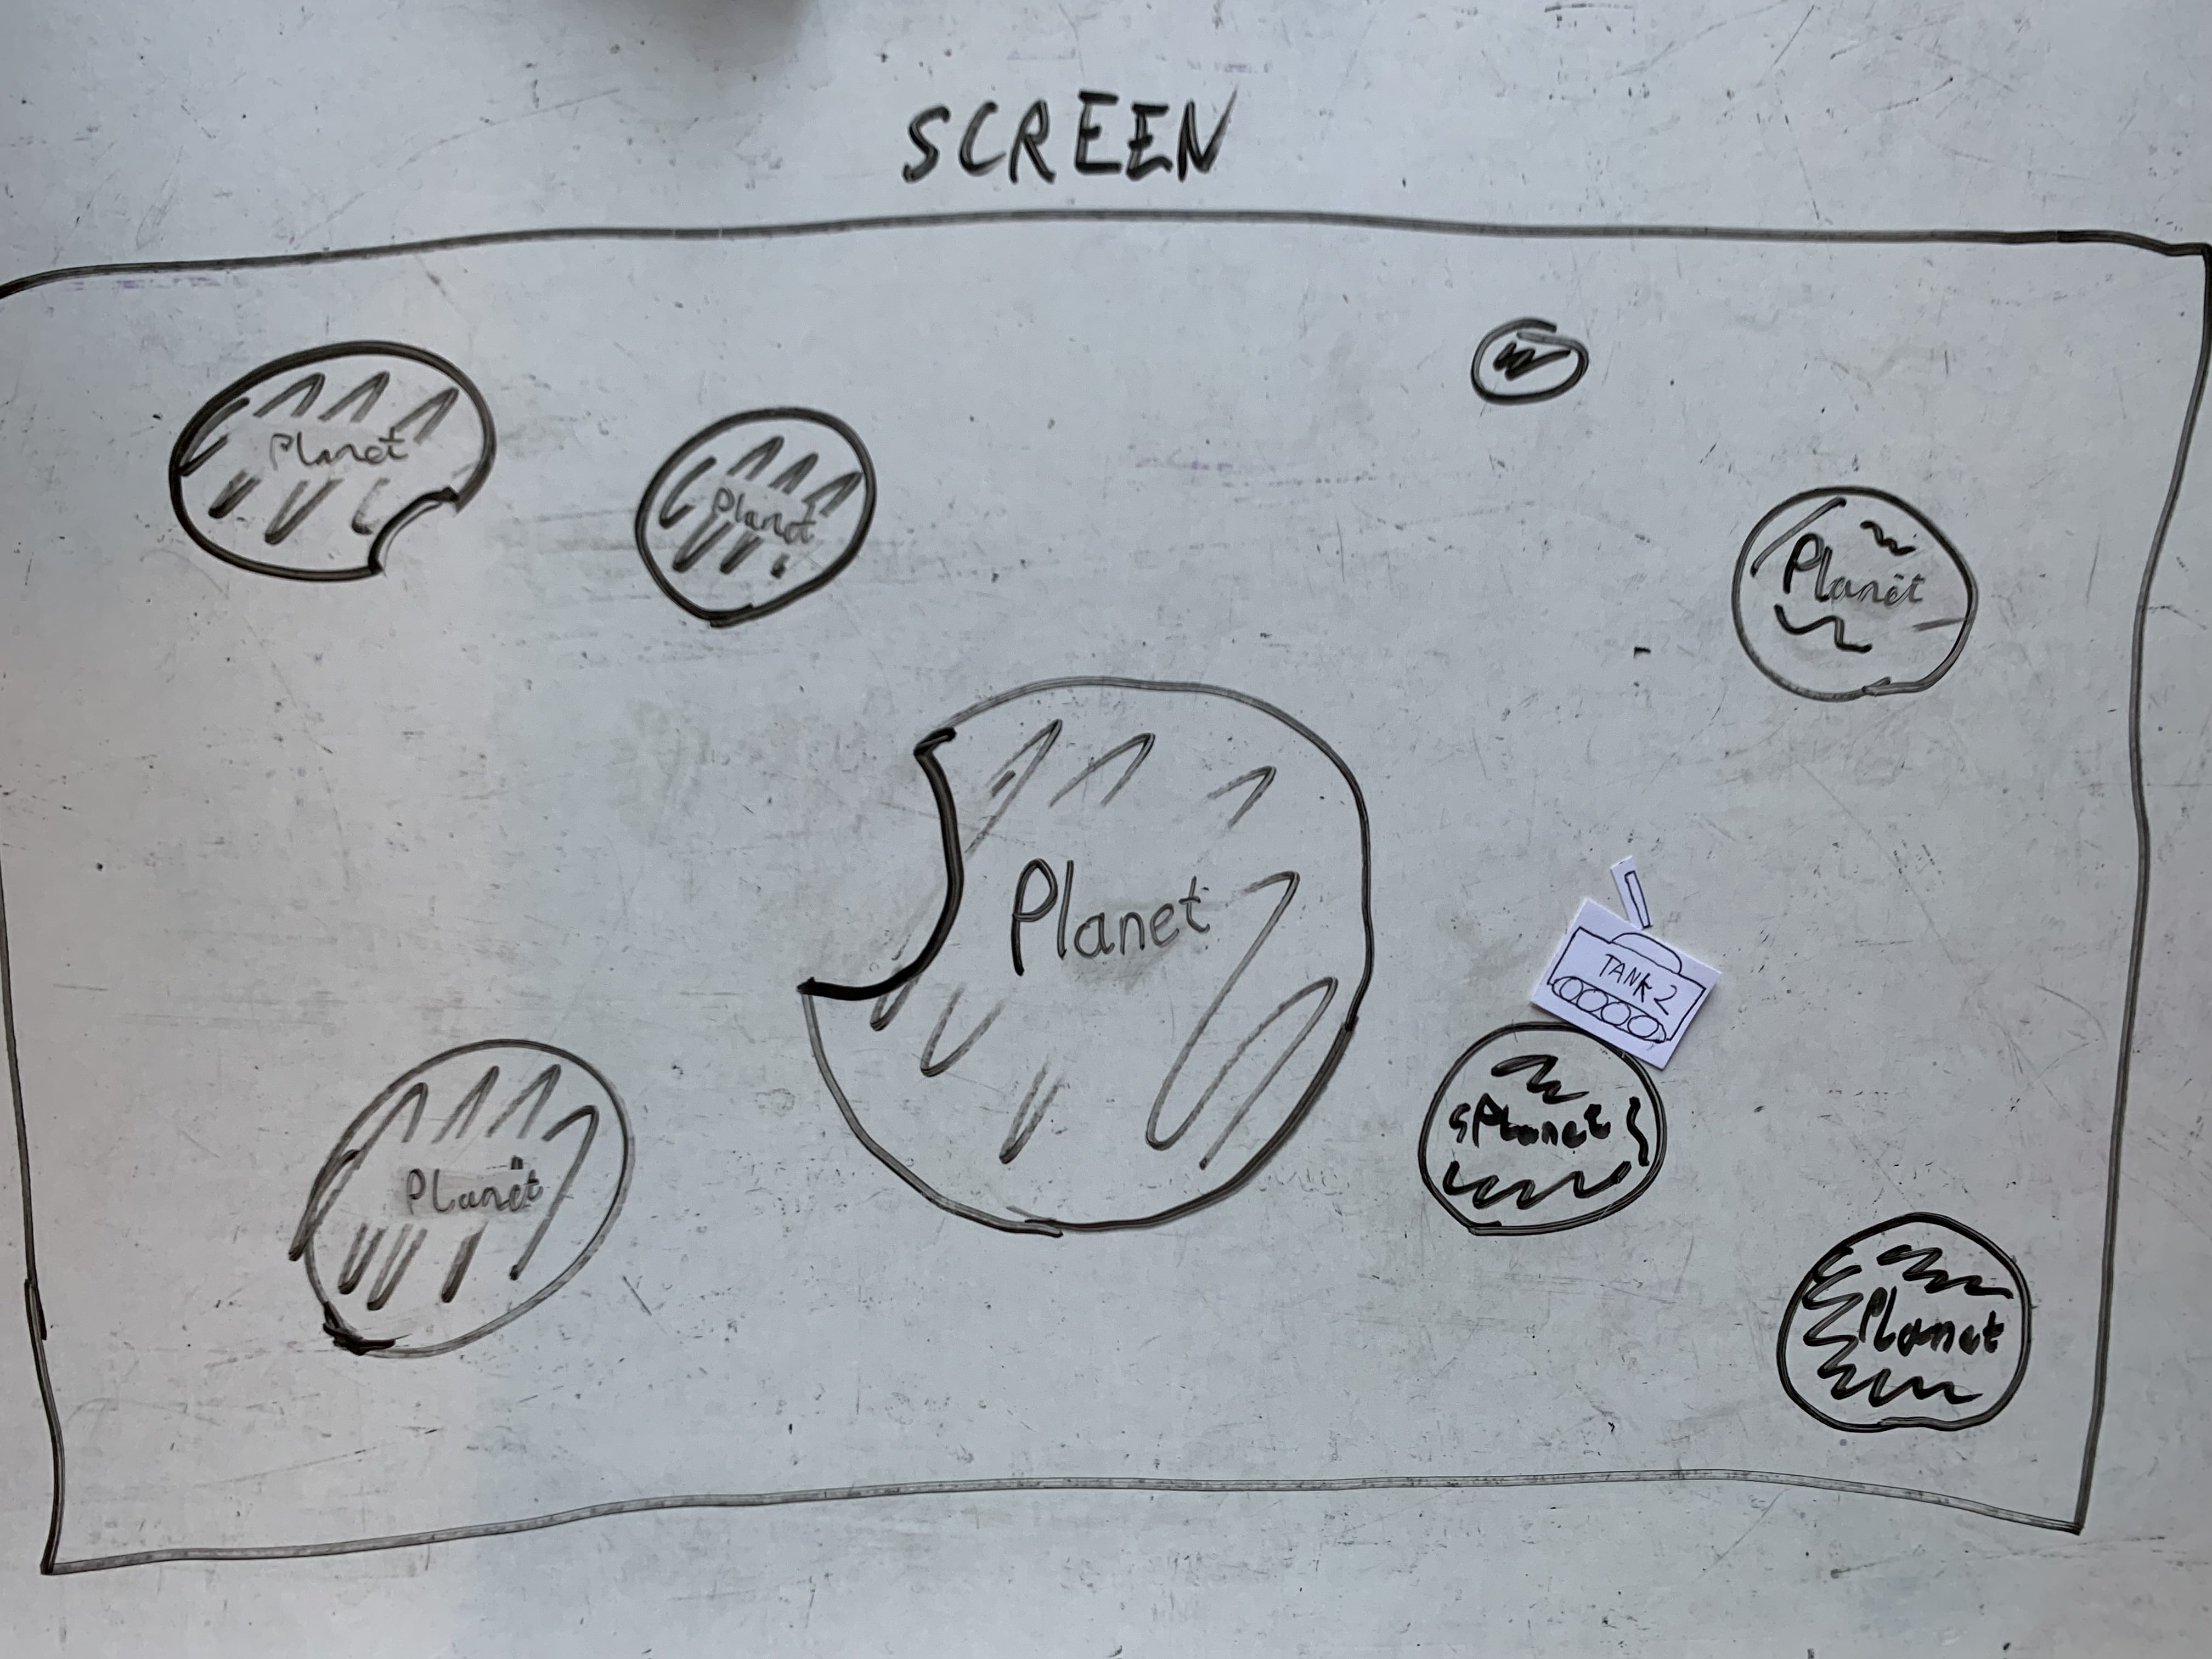 SCREEN
Planet
Planet
Planet
Planet
TANK 2
Planet
Planet
Planet